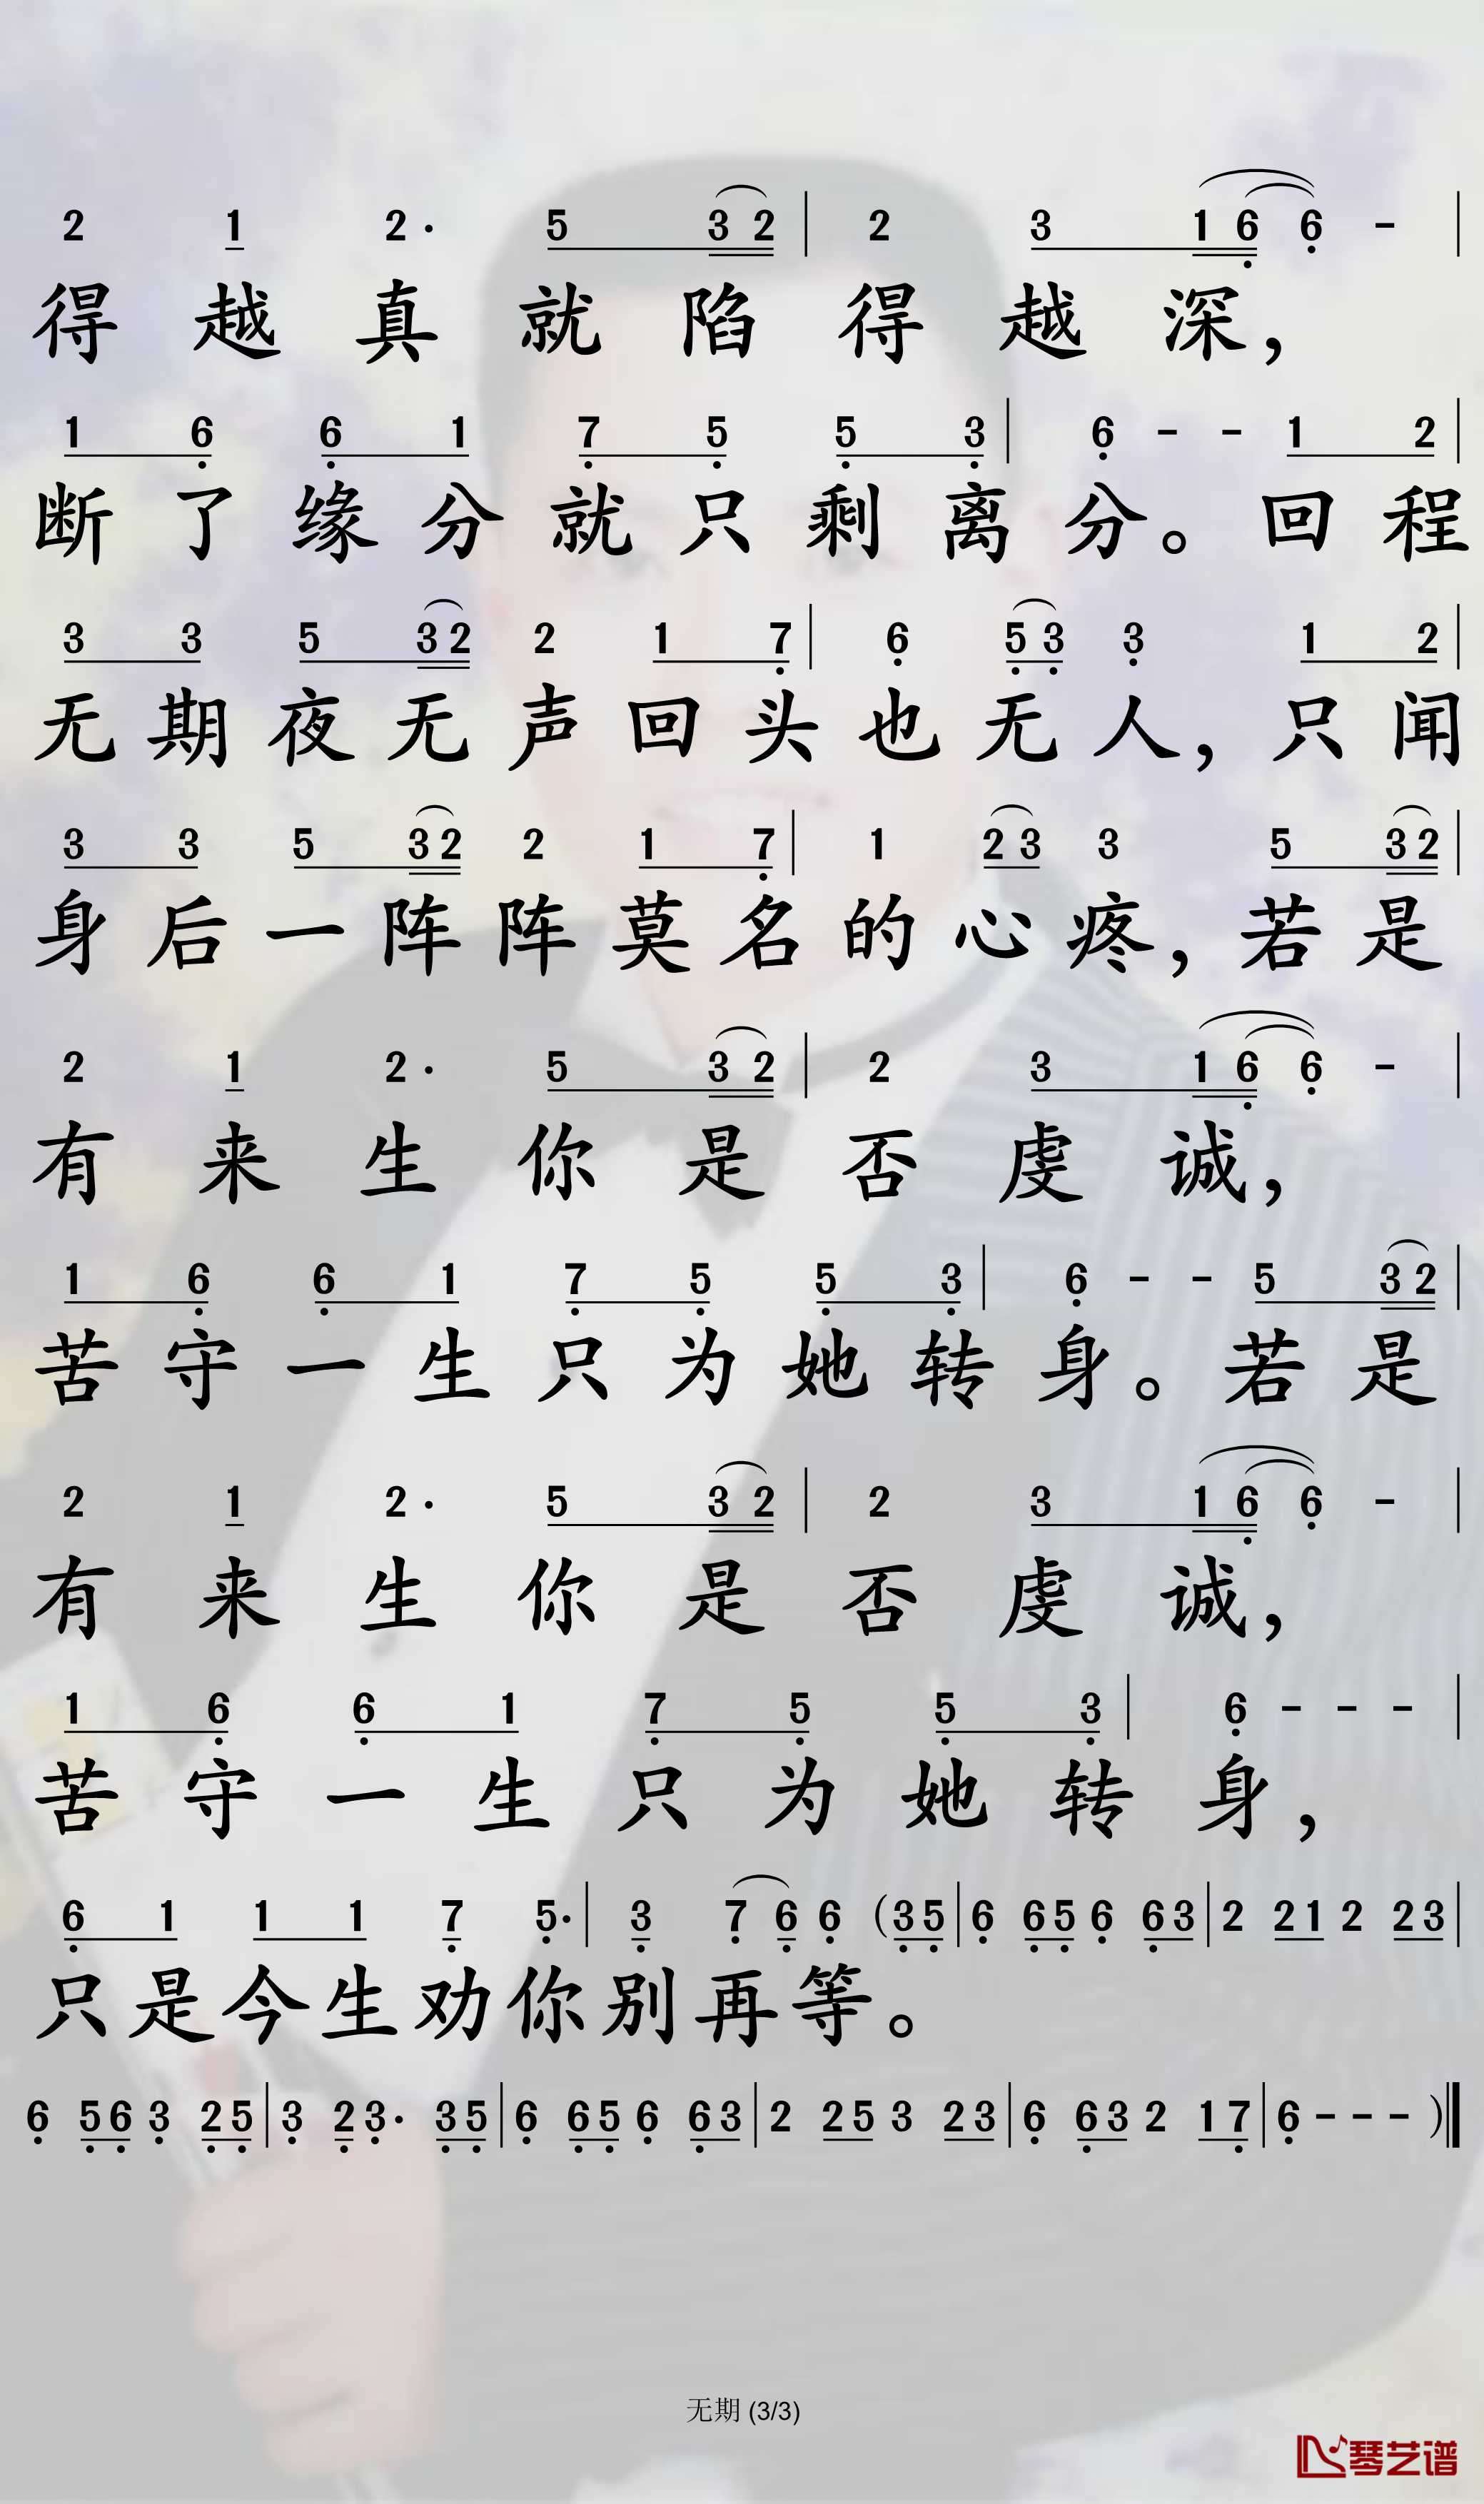 2 1 2· 5 3 2 | 2 3 1 6 6 - |
得越真就陷得越深，
1 6 6 1 7 5 5 3 | 6 - - 1 2 |
断了缘分就只剩离分。回程
3 3 5 3 2 2 1 7 | 6 5 3 3 1 2 |
无期夜无声回头也无人，只闻
3 3 5 3 2 2 1 7 | 1 2 3 3 5 3 2 |
身后一阵阵莫名的心疼，若是
2 1 2· 5 3 2 | 2 3 1 6 6 - |
有来生你是否虔诚，
1 6 6 1 7 5 5 3 | 6 - - 5 3 2 |
苦守一生只为她转身。若是
2 1 2· 5 3 2 | 2 3 1 6 6 - |
有来生你是否虔诚，
1 6 6 1 7 5 5 3 | 6 - - - |
苦守一生只为她转身，
6 1 1 1 7 5· | 3 7 6 6 (3 5 | 6 6 5 6 6 3 | 2 2 1 2 2 3 |
只是今生劝你别再等。
6 5 6 3 2 5 | 3 2 3· 3 5 | 6 6 5 6 6 3 | 2 2 5 3 2 3 | 6 6 3 2 1 7 | 6 - - - )‖
无期 (3/3)
琴艺谱